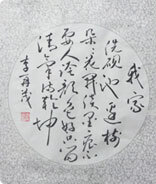 我家
洗砚池边树
朵朵花开淡墨痕
要人夸颜色好只留
清气满乾坤